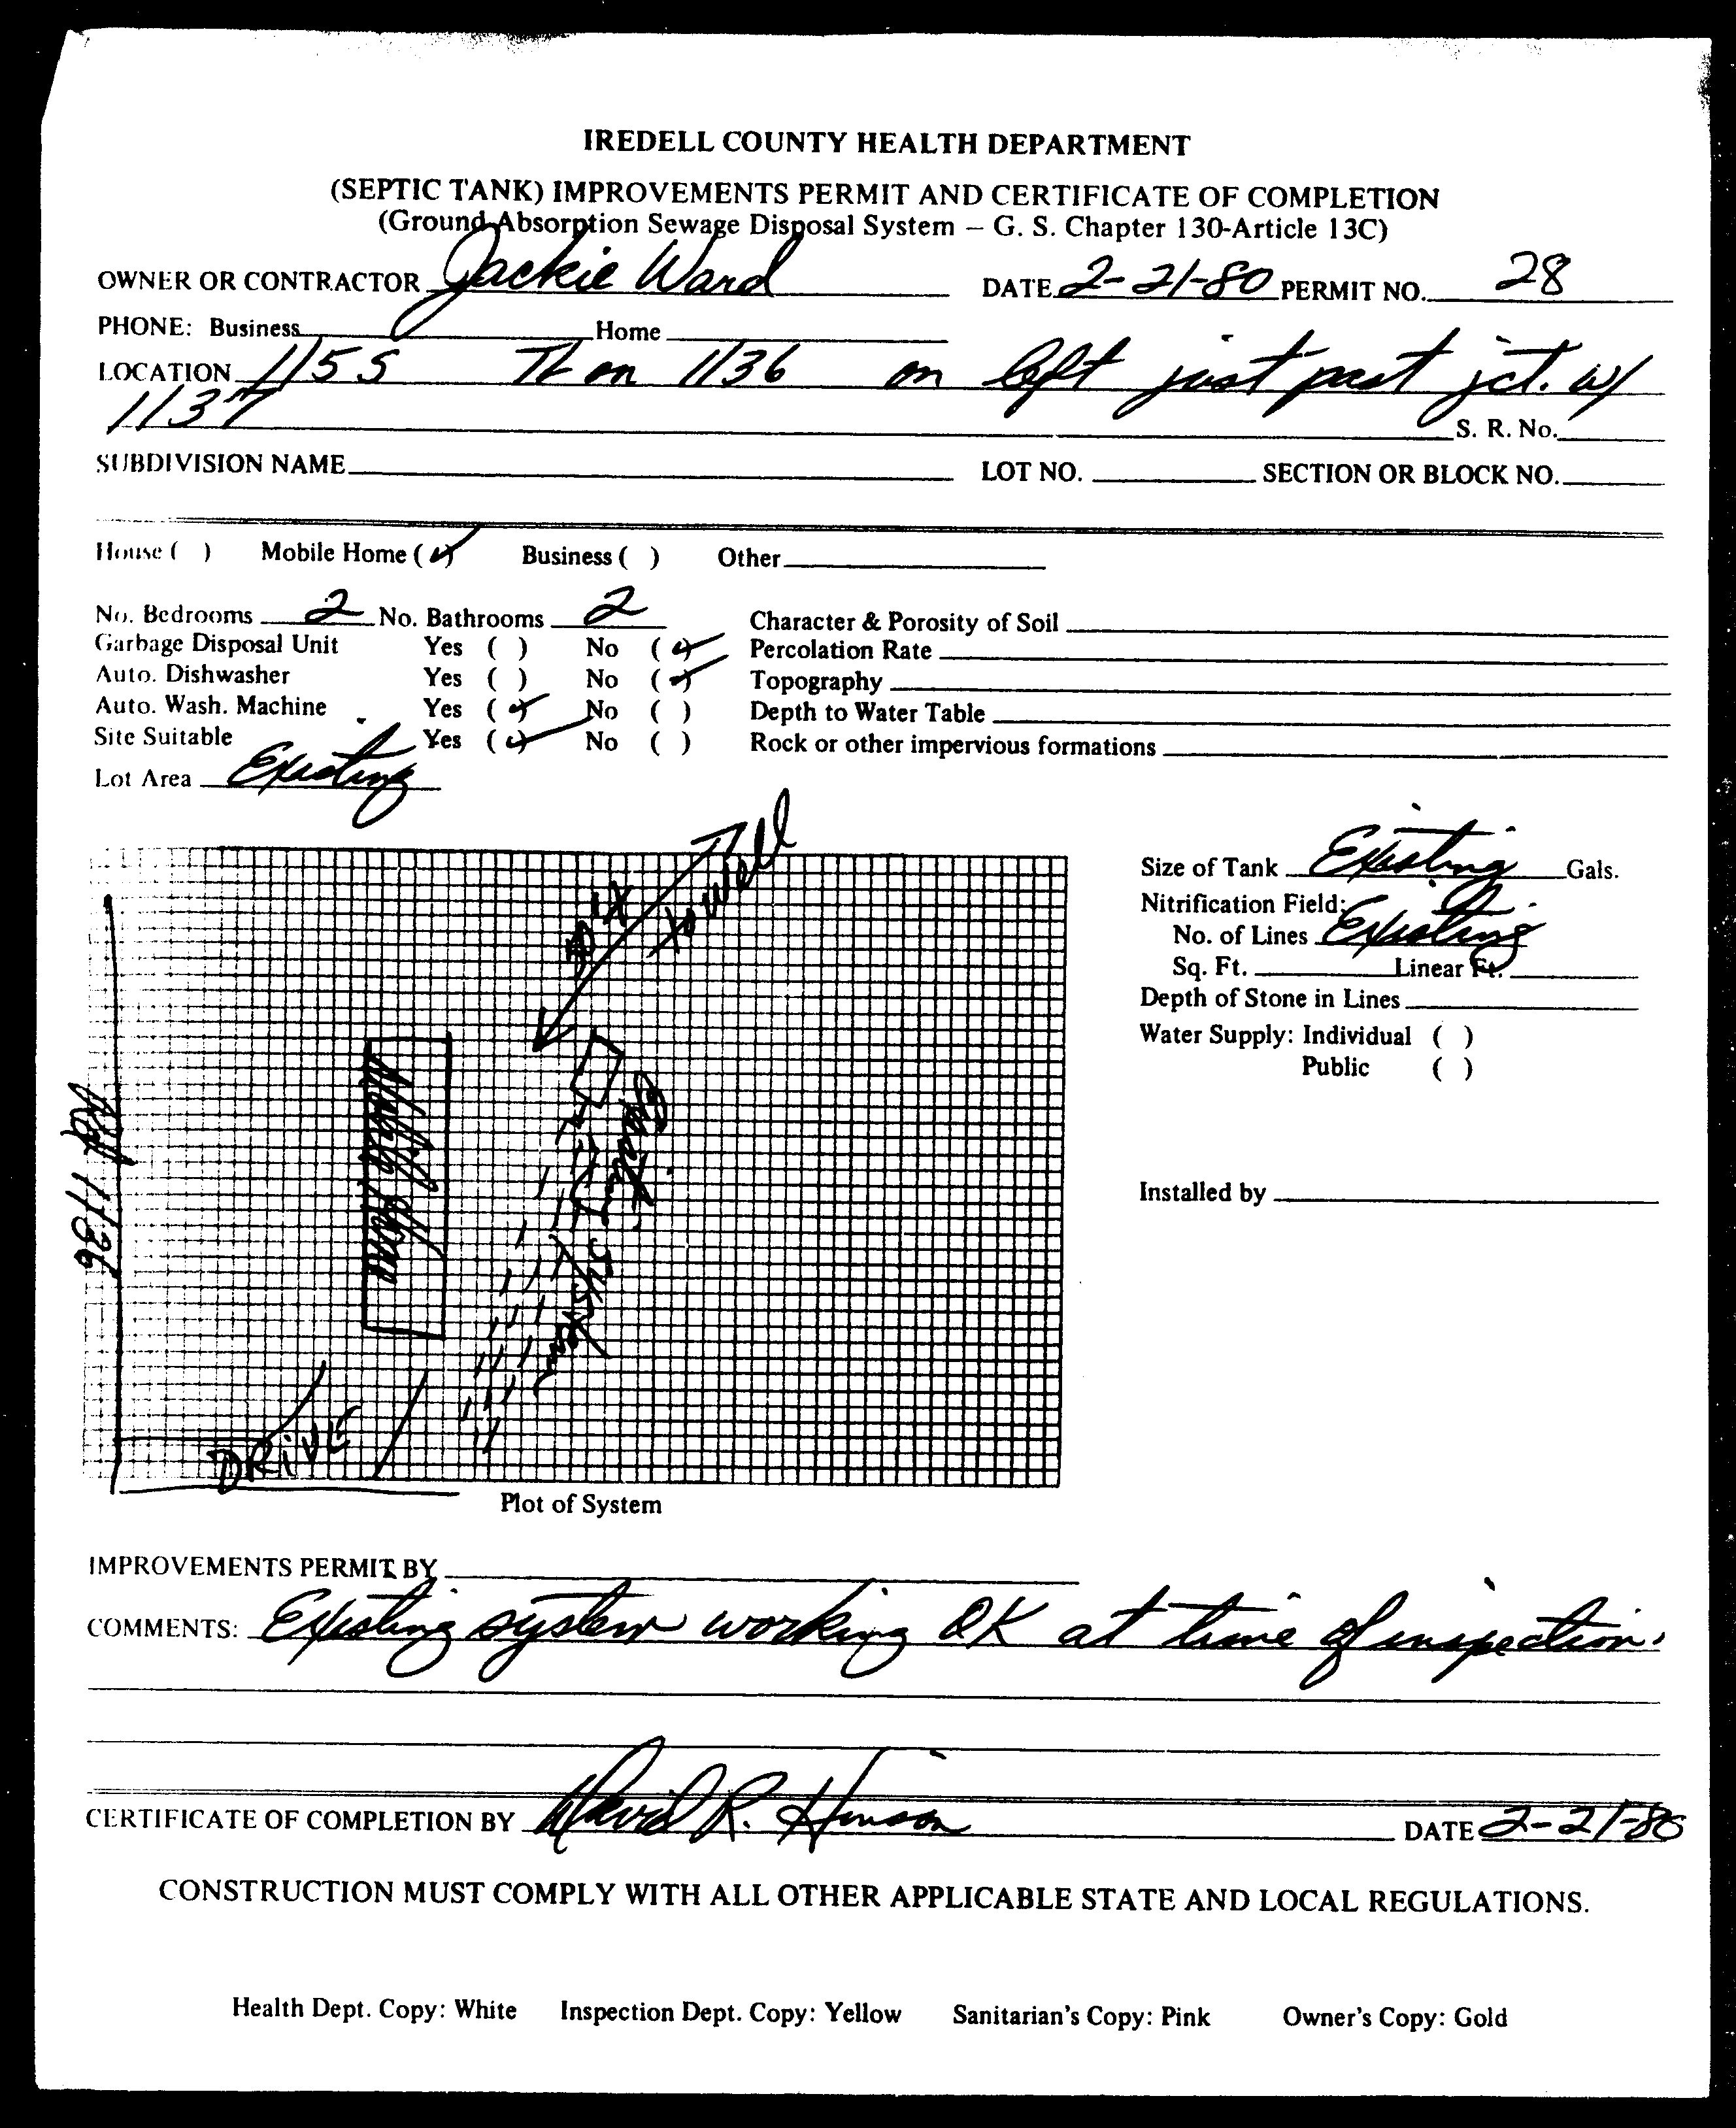 IREDELL COUNTY HEALTH DEPARTMENT
(SEPTIC TANK) IMPROVEMENTS PERMIT AND CERTIFICATE OF COMPLETION
(Ground Absorption Sewage Disposal System – G. S. Chapter 130-Article 13C)
OWNER OR CONTRACTOR Jackie Ward DATE 2-21-80 PERMIT NO. 28
PHONE: Business Home
LOCATION 115 S TL on 1136 on left just past jct. w/
1137 S. R. No.
SUBDIVISION NAME LOT NO. SECTION OR BLOCK NO.
House ( ) Mobile Home (✓) Business ( ) Other
No. Bedrooms 2 No. Bathrooms 2 Character & Porosity of Soil
Garbage Disposal Unit Yes ( ) No (✓) Percolation Rate
Auto. Dishwasher Yes ( ) No (✓) Topography
Auto. Wash. Machine Yes (✓) No ( ) Depth to Water Table
Site Suitable Yes (✓) No ( ) Rock or other impervious formations
Lot Area Existing
to well
Size of Tank Existing Gals.
Nitrification Field:
No. of Lines Existing
Sq. Ft. Linear Ft.
Depth of Stone in Lines
Water Supply: Individual ( )
Public ( )
Installed by
Rd 1136
Mobile Home
Exist. System
DRIVE
Plot of System
IMPROVEMENTS PERMIT BY
COMMENTS: Existing system working OK at time of inspection.
CERTIFICATE OF COMPLETION BY David R. Hinson DATE 2-21-80
CONSTRUCTION MUST COMPLY WITH ALL OTHER APPLICABLE STATE AND LOCAL REGULATIONS.
Health Dept. Copy: White Inspection Dept. Copy: Yellow Sanitarian's Copy: Pink Owner's Copy: Gold